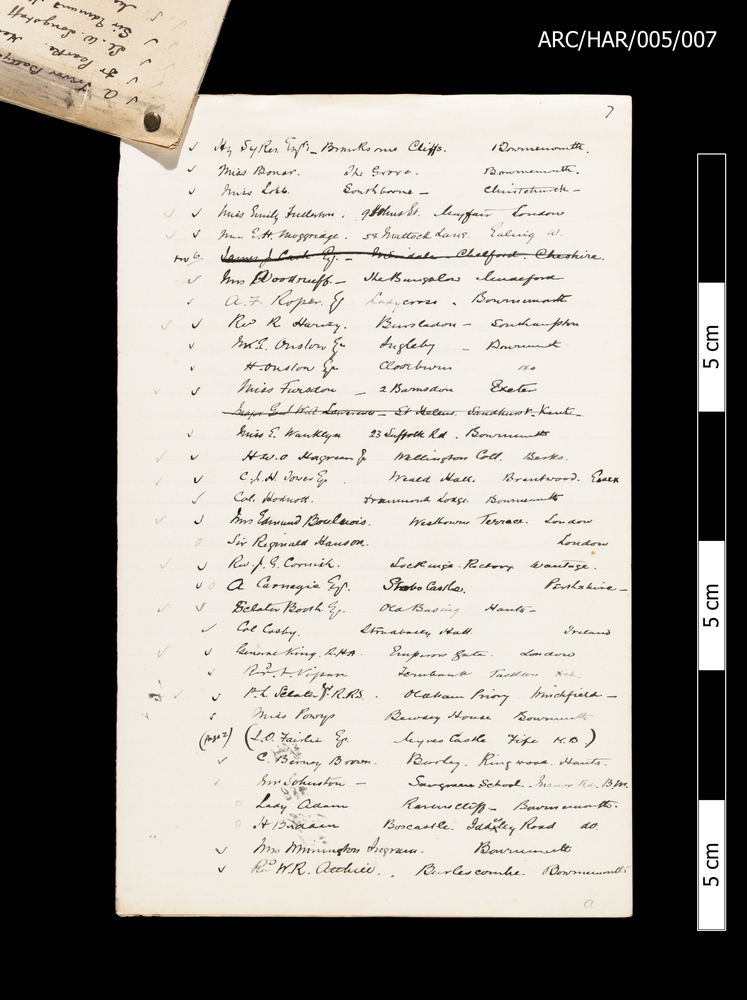 ARC/HAR/005/007
7
Hy Sykes Esqr. - Branksome Cliffs. Bournemouth.
Miss Bonar. The Grove. Bournemouth.
Miss Lobb. Southbourne - Christchurch -
Miss Emily 9 Johns St. Mayfair London
E.H. Moggridge. 58 Mattock Lane. Ealing W.
James J. Esq. - Chelford. Cheshire.
Mrs Woodruff. - The Bungalow Mudeford
A. F. Roper. Esq Ladycross. Bournemouth
Rev R Harvey. Bursledon - Southampton
Onslow Esq Ingleby - Bournemth
H. Onslow Esq Closeburn do
Miss Fursdon - 2 Barnsdon Exeter
Major Genl - St Helens. Sandhurst. Kent -
Miss E. Wanklyn 23 Suffolk Rd. Bournemouth
H. W. O Hagreen Wellington Coll. Berks.
C. J. H. Tower Esq. Weald Hall. Brentwood. Essex
Col. Drummond Lodge. Bournemouth
Mrs Edmund Boulnois. Westbourne Terrace. London
Sir Reginald Hanson. London
Rev. J. G. Cornish. Lockinge Rectory Wantage.
A Carnegie Esq. Castle. Perthshire -
Sclater Booth Esq. Old Basing Hants -
Col Cosby. Stradbally Hall. Ireland
General King. R.H.A. Emperors Gate. London
Fernbank
P. L. Sclater F.R.S. Odiham Priory Winchfield -
Miss Powys Bewsey House Bournemouth
(page 2) (J. O. Fairlie Esq. Myres Castle Fife N.B.)
C. Berney Brown. Burley. Ringwood. Hants.
Mr Johnston - Saugeen School. Rd. B.M.
Lady Adam Ravenscliff - Bournemouth.
H Boscastle. Road do.
Mrs Ingram. Bournemouth
Revd W. R. Atthill. Burlescombe. Bournemouth
a
5 cm
5 cm
5 cm